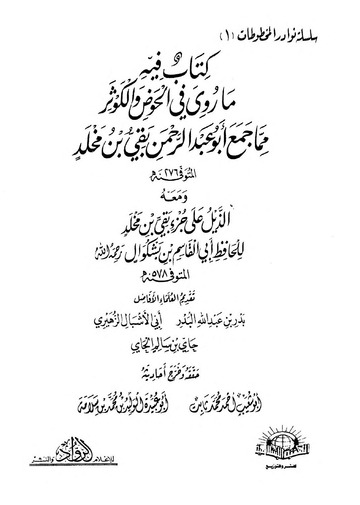 سلسلة نوادر المخطوطات (١)
كتاب فيه
ما روي في الحوض والكوثر
مما جمع أبو عبد الرحمن بقي بن مخلد
المتوفى ٢٧٦ سنة
ومعه
الذيل على جزء بقي بن مخلد
للحافظ أبي القاسم بن بشكوال رحمه الله
المتوفى ٥٧٨ سنة
تقديم العلماء الأفاضل
بدر بن عبد الله البدر أبي الأشبال الزهيري
جاي بن سالم الحاي
حققه وخرج أحاديثه
أبو شعيب أحمد محمد ثابت أبو عبيدة الوليد بن محمد بن سلامة
للنشر والتوزيع
الرواد
للإعلام والنشر